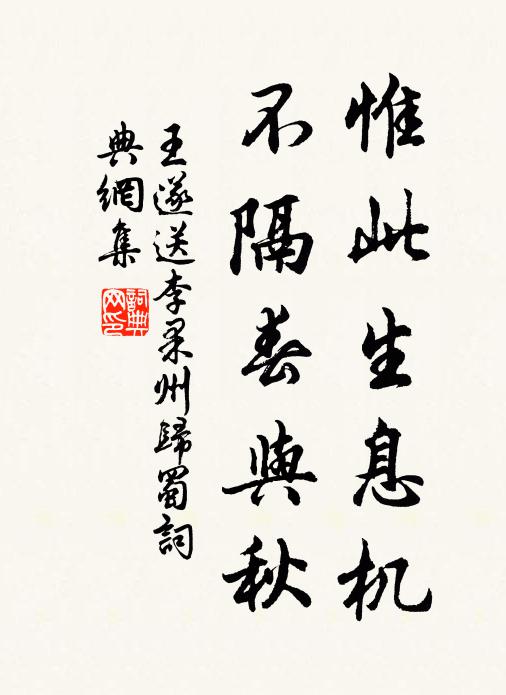 惟此生息机
不隔春與秋
王遂送李果州歸蜀詞
典網集
詞典網印